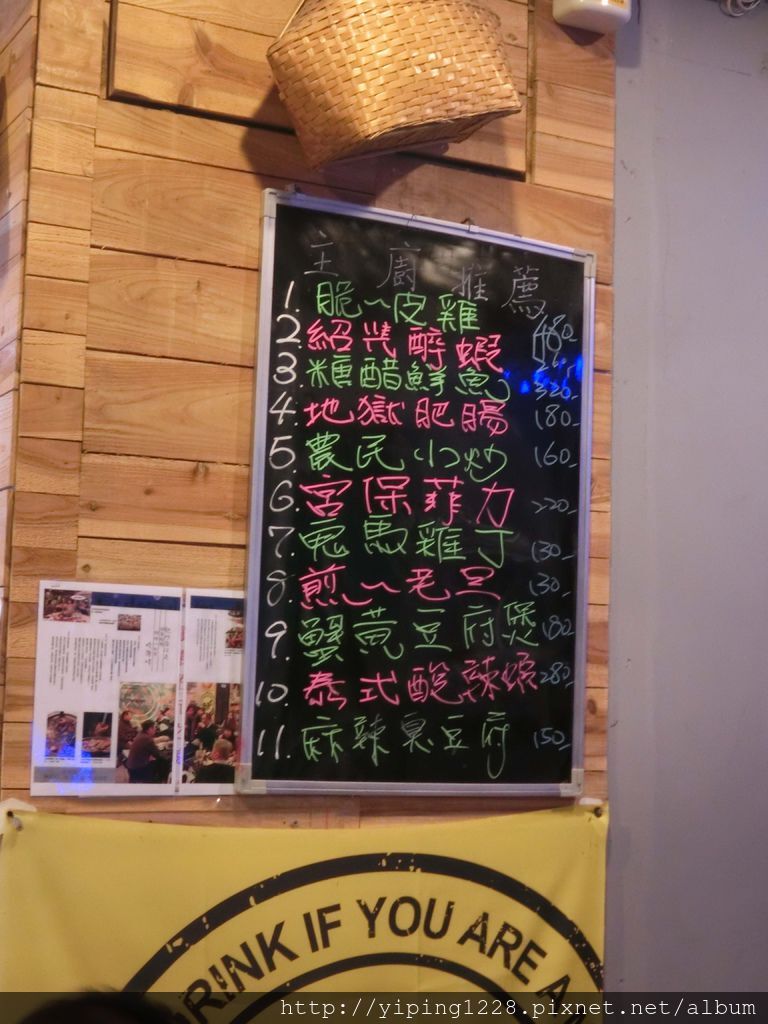 主廚推薦
1. 脆ㄟ皮雞
2. 紹興醉蝦 480-
3. 糖醋鮮魚 320-
4. 地獄肥腸 180-
5. 農民小炒 160-
6. 宮保菲力 220-
7. 鬼馬雞丁 130-
8. 煎ㄟ老豆 130-
9. 蟹黃豆府煲 180-
10. 泰式酸辣蝦 280-
11. 麻辣臭豆府 150-
DRINK IF YOU ARE
http://yiping1228.pixnet.net/album